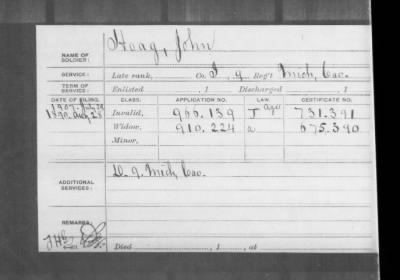 NAME OF SOLDIER: Hoag, John
SERVICE: Late rank, Co. I, 9 Reg't Mich. Cav.
TERM OF SERVICE: Enlisted , 1 Discharged , 1
DATE OF FILING. CLASS. APPLICATION NO. LAW. CERTIFICATE NO.
1890 July 28 Invalid, 960.139 J 731.391
Widow, 910.224 a 675.390
Minor,
ADDITIONAL SERVICES: D. 9. Mich. Cav.
REMARKS:
Died , 1 , at